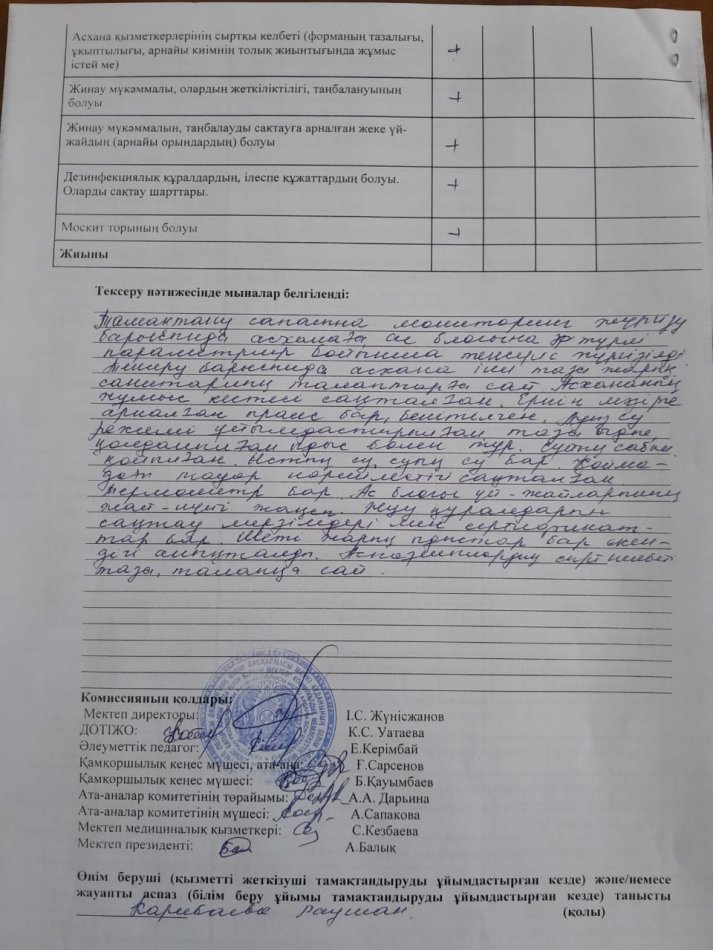 Асхана қызметкерлерінің сыртқы келбеті (форманың тазалығы,
ұқыптылығы, арнайы киімнің толық жиынтығында жұмыс
істей ме) +
Жинау мүкәммалы, олардың жеткіліктілігі, таңбалануының
болуы +
Жинау мүкәммалын, таңбалауды сақтауға арналған жеке үй-
жайдың (арнайы орындардың) болуы +
Дезинфекциялық құралдардың, ілеспе құжаттардың болуы.
Оларды сақтау шарттары. +
Москит торының болуы +
Жиыны
Тексеру нәтижесінде мыналар белгіленді:
Тамақтану сапасына мониторинг жүргізу
барысында асханаға ас блогына әр түрлі
параметрлер бойынша тексеріс жүргізілді
Тексеру барысында асхана іші таза жарық
санитарлық талаптарға сай Асхананың
жұмыс кестесі сақталған.
арналған бар, бекітілген. су
режимі ұйымдастырылған таза
ыдыс бөлек тұр. сабын
қойылған. Ыстық су, суық су бар
тауар сақталған.
Термометр бар. Ас блогы үй-жайларының
Жуу құралдарын
сақтау мерзімдері мен сертификат-
тар бар. Шеті ыдыстар бар екен-
дігі анықталды. Аспазшылардың сырт келбеті
таза, талапқа сай.
Комиссияның қолдары:
Мектеп директоры: І.С. Жүнісжанов
ДОТІЖО: К.С. Уатаева
Әлеуметтік педагог: Е.Керімбай
Қамқоршылық кеңес мүшесі, ата-ана: Ғ.Сарсенов
Қамқоршылық кеңес мүшесі: Б.Қауымбаев
Ата-аналар комитетінің төрайымы: А.А. Дарьина
Ата-аналар комитетінің мүшесі: А.Сапакова
Мектеп медициналық қызметкері: С.Кезбаева
Мектеп президенті: А.Балық
Өнім беруші (қызметті жеткізуші тамақтандыруды ұйымдастырған кезде) және/немесе
жауапты аспаз (білім беру ұйымы тамақтандыруды ұйымдастырған кезде) танысты
Карибаева Раушан. (қолы)